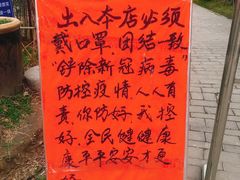 出入本店必须
戴口罩,团结一致
"铲除新冠病毒"
防控疫情,人人有
责,你防好,我控
好,全民健健康
康平平安安才更
好